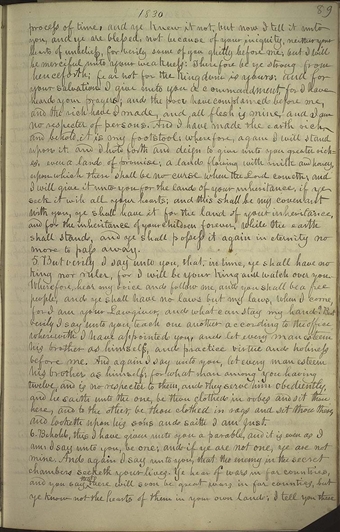 1830
89
process of time, and ye knew it not; but now I tell it unto
you, and ye are blessed, not because of your iniquity, neither your
hearts of unbelief, for verily some of you guilty before me; but I will
be merciful unto your weakness. Therefore be ye strong from
henceforth; fear not for the kingdom is yours: and for
your salvation I give unto you a commandment, for I have
heard your prayers, and the poor have complained before me,
and the rich have I made, and all flesh is mine, and I am
no respecter of persons. And I have made the earth rich,
and behold, it is my footstool: wherefore, again I will stand
upon it: and I hold forth and deign to give unto you greater rich-
es, even a land of promise; a land flowing with milk and honey,
upon which there shall be no curse when the Lord cometh; and
I will give it unto you for the land of your inheritance, if ye
seek it with all your hearts; and this shall be my covenant
with you, ye shall have it for the land of your inheritance,
and for the inheritance of your children forever, while the earth
shall stand, and ye shall possess it again in eternity, no
more to pass away.
5. But verily I say unto you, that, in time, ye shall have no
king nor ruler, for I will be your King and watch over you.
Wherefore, hear my voice and follow me, and you shall be a free
people, and ye shall have no laws but my laws, when I come,
for I am your Lawgiver, and what can stay my hand? But
verily I say unto you, teach one another according to the office
wherewith I have appointed you, and let every man esteem
his brother as himself, and practice virtue and holiness
before me. And again I say unto you, let every man esteem
his brother as himself; for what man among you having
twelve sons, and is no respecter to them, and they serve him obediently,
and he saith unto the one, be thou clothed in robes and sit thou
here; and to the other, be thou clothed in rags and sit thou there,
and looketh upon his sons and saith I am just.
6. Behold, this I have given unto you a parable, and it is even as I
am: I say unto you, be one; and if ye are not one, ye are not
mine. And again I say unto you, that the enemy in the secret
chambers seeketh your lives. Ye hear of wars in far countries,
and you say there will soon be great wars in far countries, but
ye know not the hearts of them in your own land; I tell you these